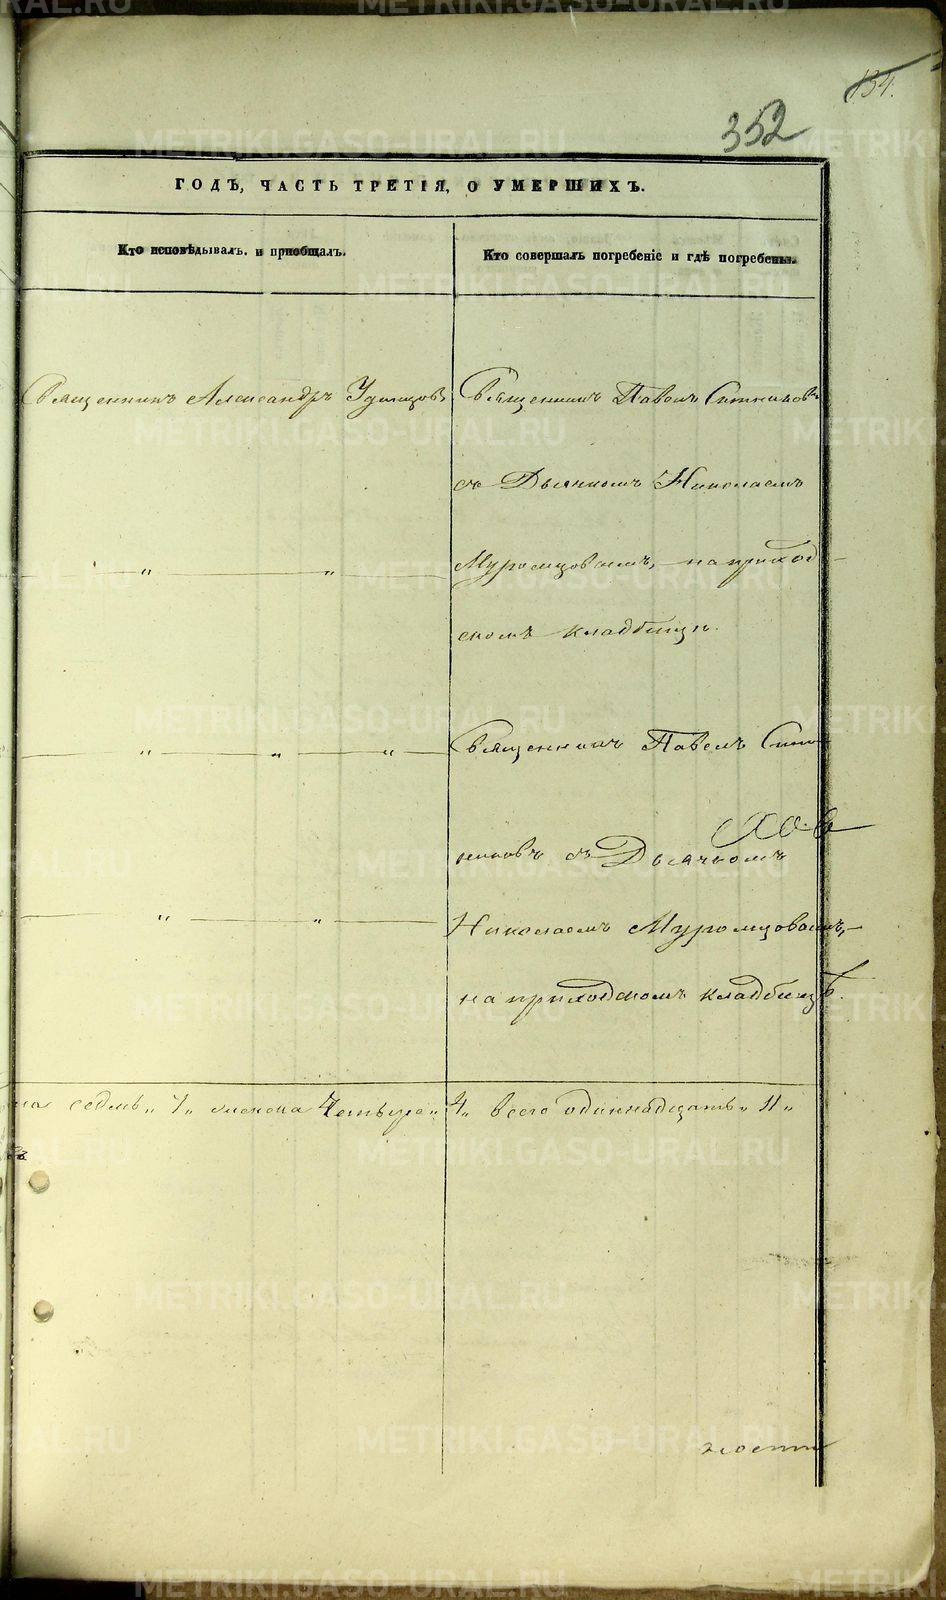 134.
352
ГОДЪ, ЧАСТЬ ТРЕТІЯ, О УМЕРШИХЪ.
Кто исповѣдывалъ и пріобщалъ.
Кто совершалъ погребеніе и гдѣ погребены.
Священникъ Александръ
Священникъ Павелъ Ситниковъ
съ Дьячкомъ Николаемъ
Муромцовымъ, на приход-
скомъ кладбищѣ.
Священникъ Павелъ Сит
никовъ съ Дьячкомъ
Николаемъ Муромцовымъ,
на приходскомъ кладбищѣ.
седмь „7„ женска четыре „4„ всего одиннадцать „11„
METRIKI.GASO-URAL.RU